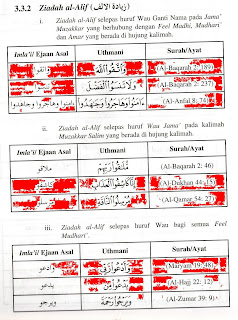 3.3.2 Ziadah al-Alif (زيادة الألف)
i. Ziadah al-Alif selepas huruf Wau Ganti Nama pada Jama'
Muzakkar yang berhubung dengan Feel Madhi, Madhari'
dan Amar yang berada di hujung kalimah.
Imla'ii Ejaan Asal Uthmani Surah/Ayat
(Al-Baqarah 2: 189)
(Al-Baqarah 2: 237)
(Al-Anfal 8: 74)
ii. Ziadah al-Alif selepas huruf Wau Jama' pada kalimah
Muzakkar Salim yang berada di hujung kalimah.
Imla'ii Ejaan Asal Uthmani Surah/Ayat
ملاقو مُّلَٰقُوا۟ رَبِّهِمْ (Al-Baqarah 2: 46)
(Al-Dukhan 44: 15)
(Al-Qamar 54: 27)
iii. Ziadah al-Alif selepas huruf Wau bagi semua Feel
Madhari'.
Imla'ii Ejaan Asal Uthmani Surah/Ayat
وأدعو (Maryam 19: 48)
يدعو (Al-Hajj 22: 12)
ويرجو (Al-Zumar 39: 9)